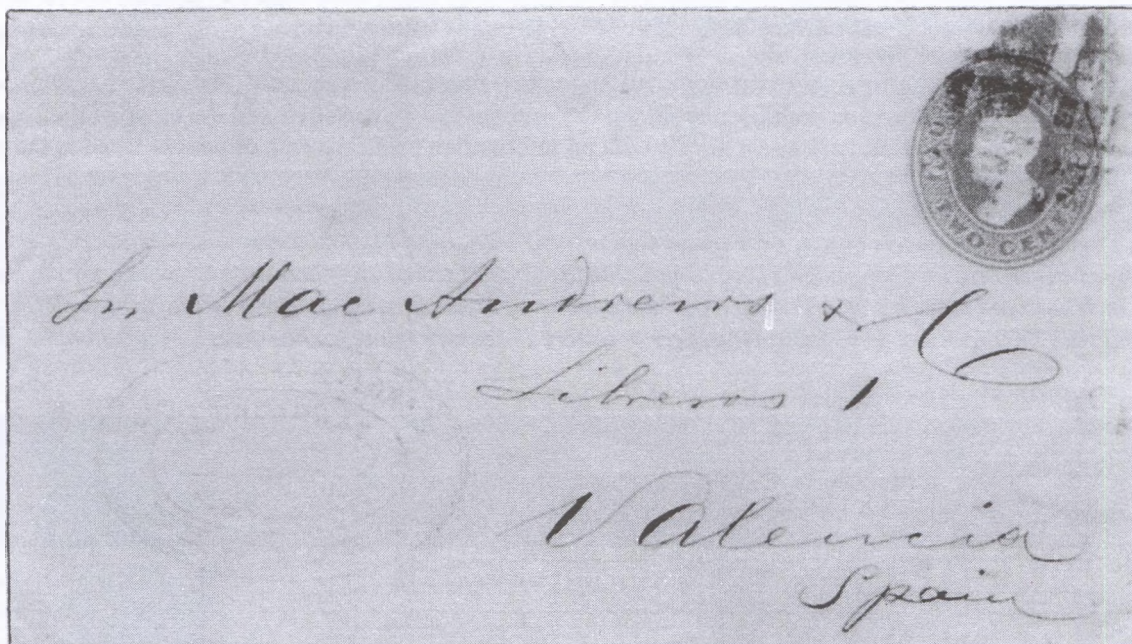 TWO CENTS
Sr. Mac Andrews & C
Libreros 1
Valencia
Spain